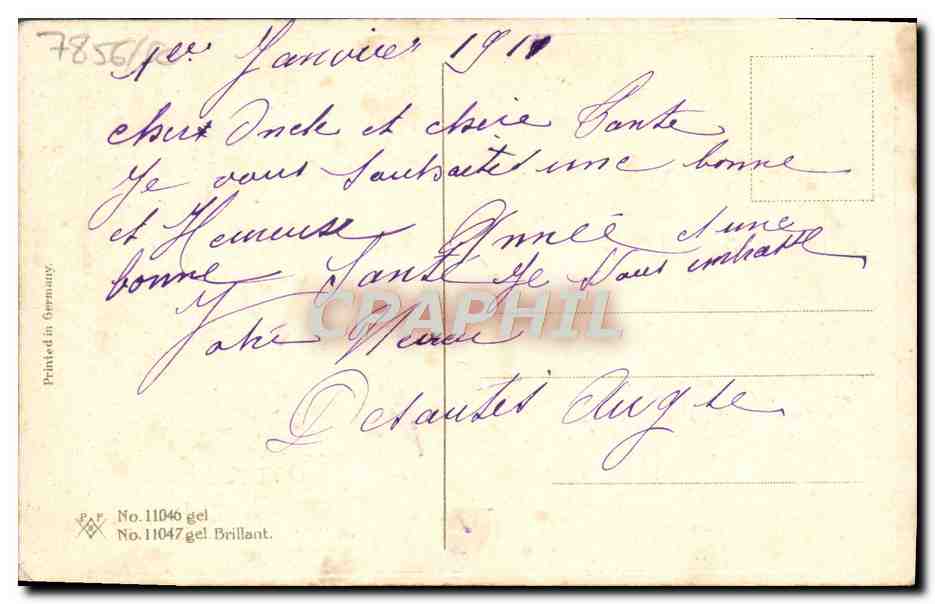 7856/
1er Janvier 1911
cher Oncle et chère Tante
Je vous souhaites une bonne
et Heureuse Année d'une
bonne Santé Je Vous embrasse
Votre Neveu
Desautes Aug te
CPAPHIL
Printed in Germany.
P P
No. 11046 gel
No. 11047 gel. Brillant.